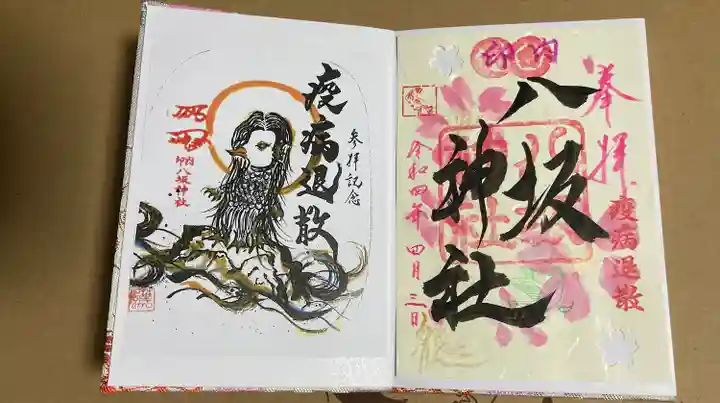 奉拝
疫病退散
印内
八坂
神社
令和四年四月三日
疫病退散
参拝記念
印内八坂神社